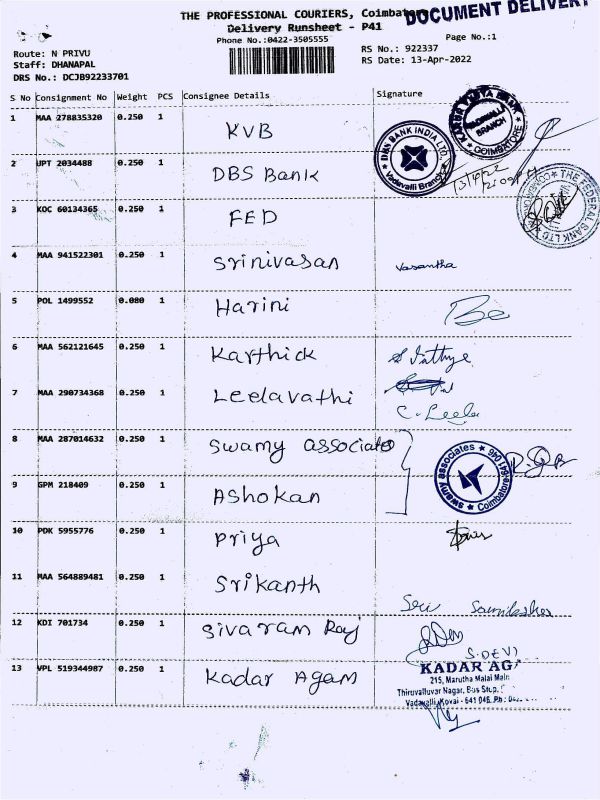 THE PROFESSIONAL COURIERS, Coimbatore
DOCUMENT DELIVERY
Delivery Runsheet - P41
Phone No.:0422-3505555
Page No.:1
Route: N PRIVU
Staff: DHANAPAL
DRS No.: DCJB92233701
RS No.: 922337
RS Date: 13-Apr-2022
S No Consignment No Weight PCS Consignee Details Signature
1 MAA 278835320 0.250 1 KVB
KARUR VYSYA BANK COIMBATORE BRANCH
2 UPT 2034488 0.250 1 DBS Bank
DBS BANK INDIA LTD. Vadavalli Branch
3 KOC 60134365 0.250 1 FED
THE FEDERAL BANK LTD
4 MAA 941522301 0.250 1 Srinivasan Vasantha
5 POL 1499552 0.080 1 Harini
6 MAA 562121645 0.250 1 Karthick
7 MAA 290734368 0.250 1 Leelavathi C. Leela
8 MAA 287014632 0.250 1 Swamy associate
swamy associates Coimbatore-641 046
9 GPM 218409 0.250 1 Ashokan
10 PDK 5955776 0.250 1 Priya
11 MAA 564889481 0.250 1 Srikanth
12 KDI 701734 0.250 1 Sivaram Raj
S.DEVI
13 VPL 519344987 0.250 1 Kadar Agam
KADAR AG
215, Marutha Malai Main
Thiruvalluvar Nagar, Bus Stop,
Vadavalli, Kovai - 641 046. Ph: